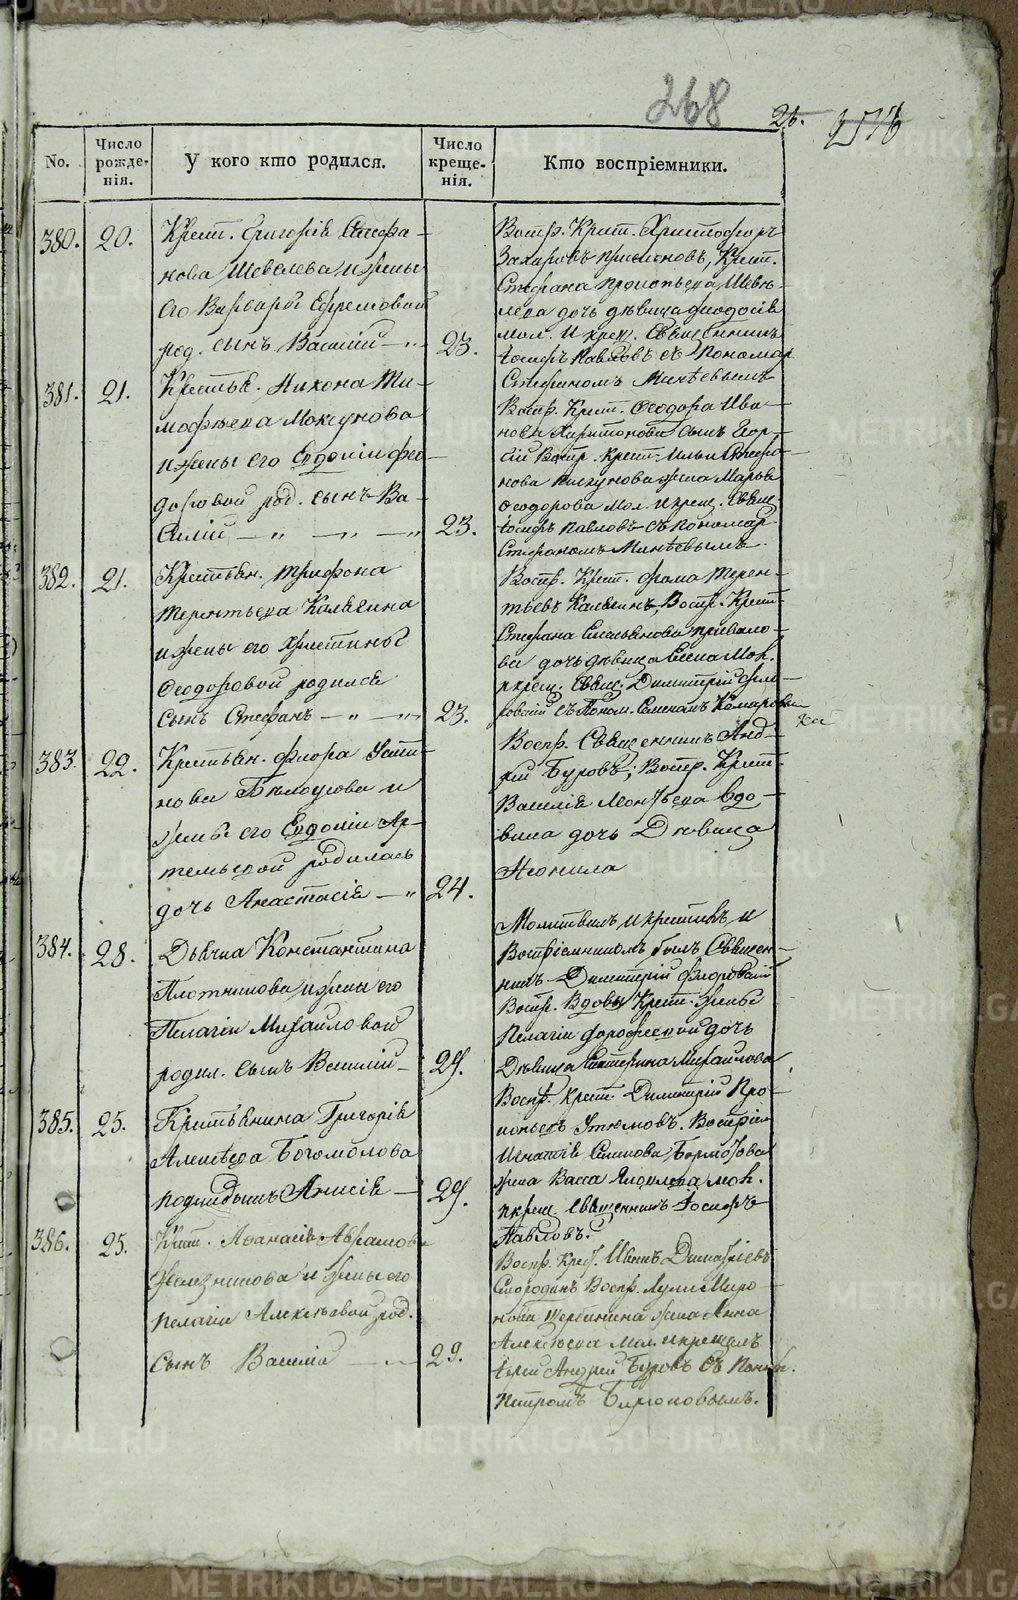 268
26.
No.
Число рожденія.
У кого кто родился.
Число крещенія.
Кто воспріемники.
380. 20.
Крест. Григорія Стефа-
нова Шевелева и жены
его Варвары Ефремовой
род. сынъ Василій 23.
Воспр. Крест. Христофоръ
Захаровъ, Крест.
Стефана Прокопьева Шеве-
лева дочь дѣвица Феодосія
мол. и крест. Священникъ
Іосифъ Павловъ съ Пономар.
Стефаномъ Михѣевымъ
381. 21.
Крестья. Никона Ти-
мофѣева
и жены его Евдокіи Фео-
доровой род. сынъ Ва-
силій 23.
Воспр. Крест. Феодора Ива-
нова Харитонова сынъ Геор-
гій Воспр. Крест. Ильи Стефа-
нова Пискунова жена Марѳа
Феодорова Мол. и крещ. Свящ.
Іосифъ Павловъ съ Пономар.
Стефаномъ Михѣевымъ.
382. 21.
Крестьян. Трифона
Терентьева Калягина
и жены его Христины
Феодоровой родился
сынъ Стефанъ 23.
Воспр. Крест. Фома Терен-
тьевъ Калягинъ, Воспр. Крест.
Стефана Емельянова Привало-
ва дочь дѣвица Елена Мол.
и крещ. Свящ. Димитрій Фло-
ровскій съ Поном.
383. 22.
Крестьян. Флора Усти-
нова Бѣлоусова и
жены его Евдокіи Ар-
темьевой родилась
дочь Анастасія 24.
Воспр. Священникъ Анд-
рей Буровъ; Воспр. Крест.
Василія Леонтьева Вдо-
вина дочь Дѣвица
Неонила
384. 28.
Дьячка Константина
Плотникова и жены его
Пелагіи Михайловой
родил. сынъ Василій 29.
Молитвилъ и крестилъ и
Воспріемникомъ былъ Священ-
никъ Димитрій Флоровскій
Воспр. Вдовы Крест. жены
Пелагіи Дорофеевой дочь
Дѣвица Екатерина Михайлова
385. 25.
Крестьянина Григорія
Алексѣева Богомолова
Анисія 29.
Воспр. Крест. Димитрій Про-
копьевъ Утюмовъ. Воспріем.
Игнатія Симонова
жена Васса Яковлева мол.
и крещ. Священникъ Іосифъ
Павловъ.
386. 25.
Крест. Аѳанасія Абрамова
Желѣзникова и жены его
Пелагіи Алексѣевой род.
Сынъ Василій 29.
Воспр. Крест. Иванъ Димитріевъ
Смородинъ Воспр. Луки Миро-
нова Щербинина жена Анна
Алексѣева мол. и крещалъ
Іерей Андрей Буровъ съ Поном.
Петромъ Бирюковымъ.
METRIKI.GASO-URAL.RU